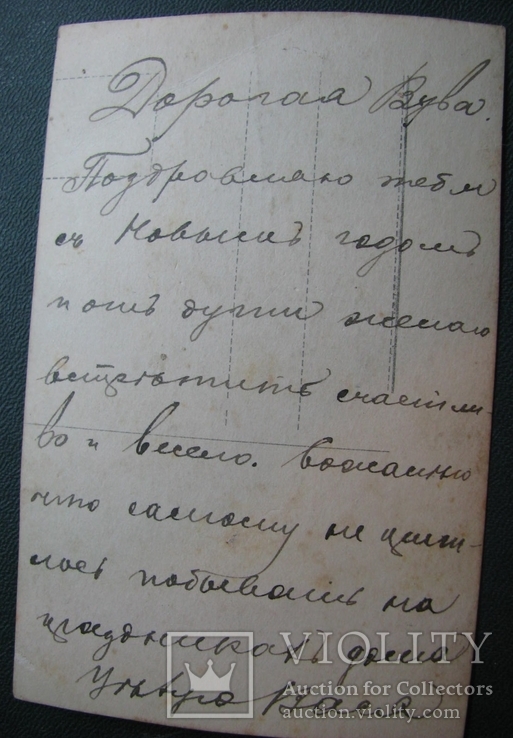 Дорогая Вува.
Поздравляю тебя
съ Новымъ годомъ
и отъ души желаю
встрѣтить счастли-
во и весело.
что самому не
лось побывать на
праздникахъ дома
Вася.
VIOLITY
Auction for Collectors
auction.violity.com